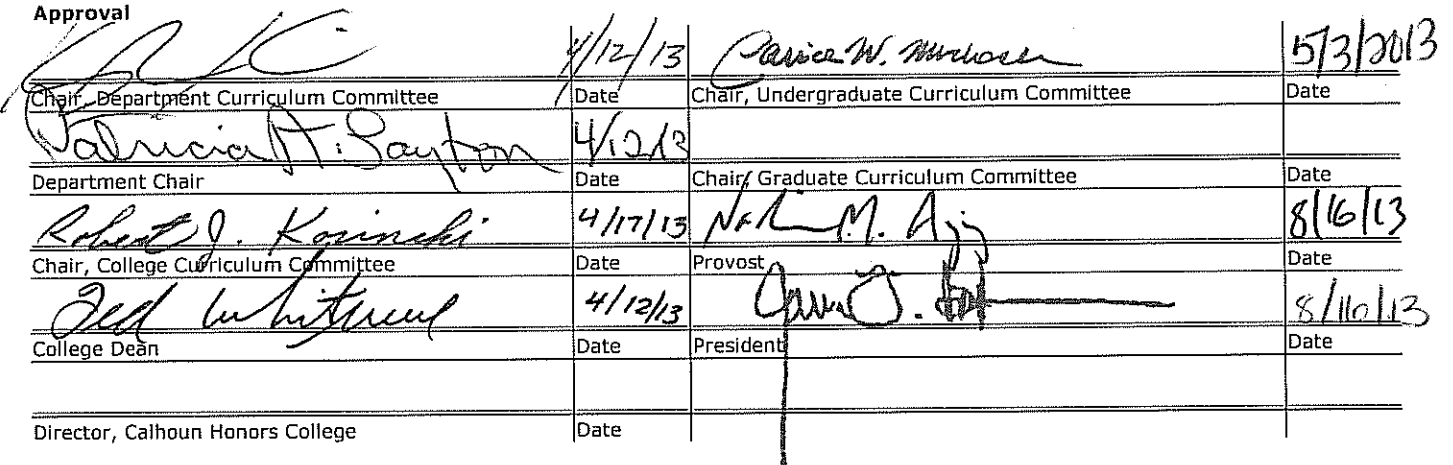 Approval
4/12/13 5/3/2013
Chair, Department Curriculum Committee Date Chair, Undergraduate Curriculum Committee Date
Patricia A. Layton 4/12/13
Department Chair Date Chair, Graduate Curriculum Committee Date
Robert J. Kosinski 4/17/13 M. 8/16/13
Chair, College Curriculum Committee Date Provost Date
4/12/13 8/16/13
College Dean Date President Date
Director, Calhoun Honors College Date